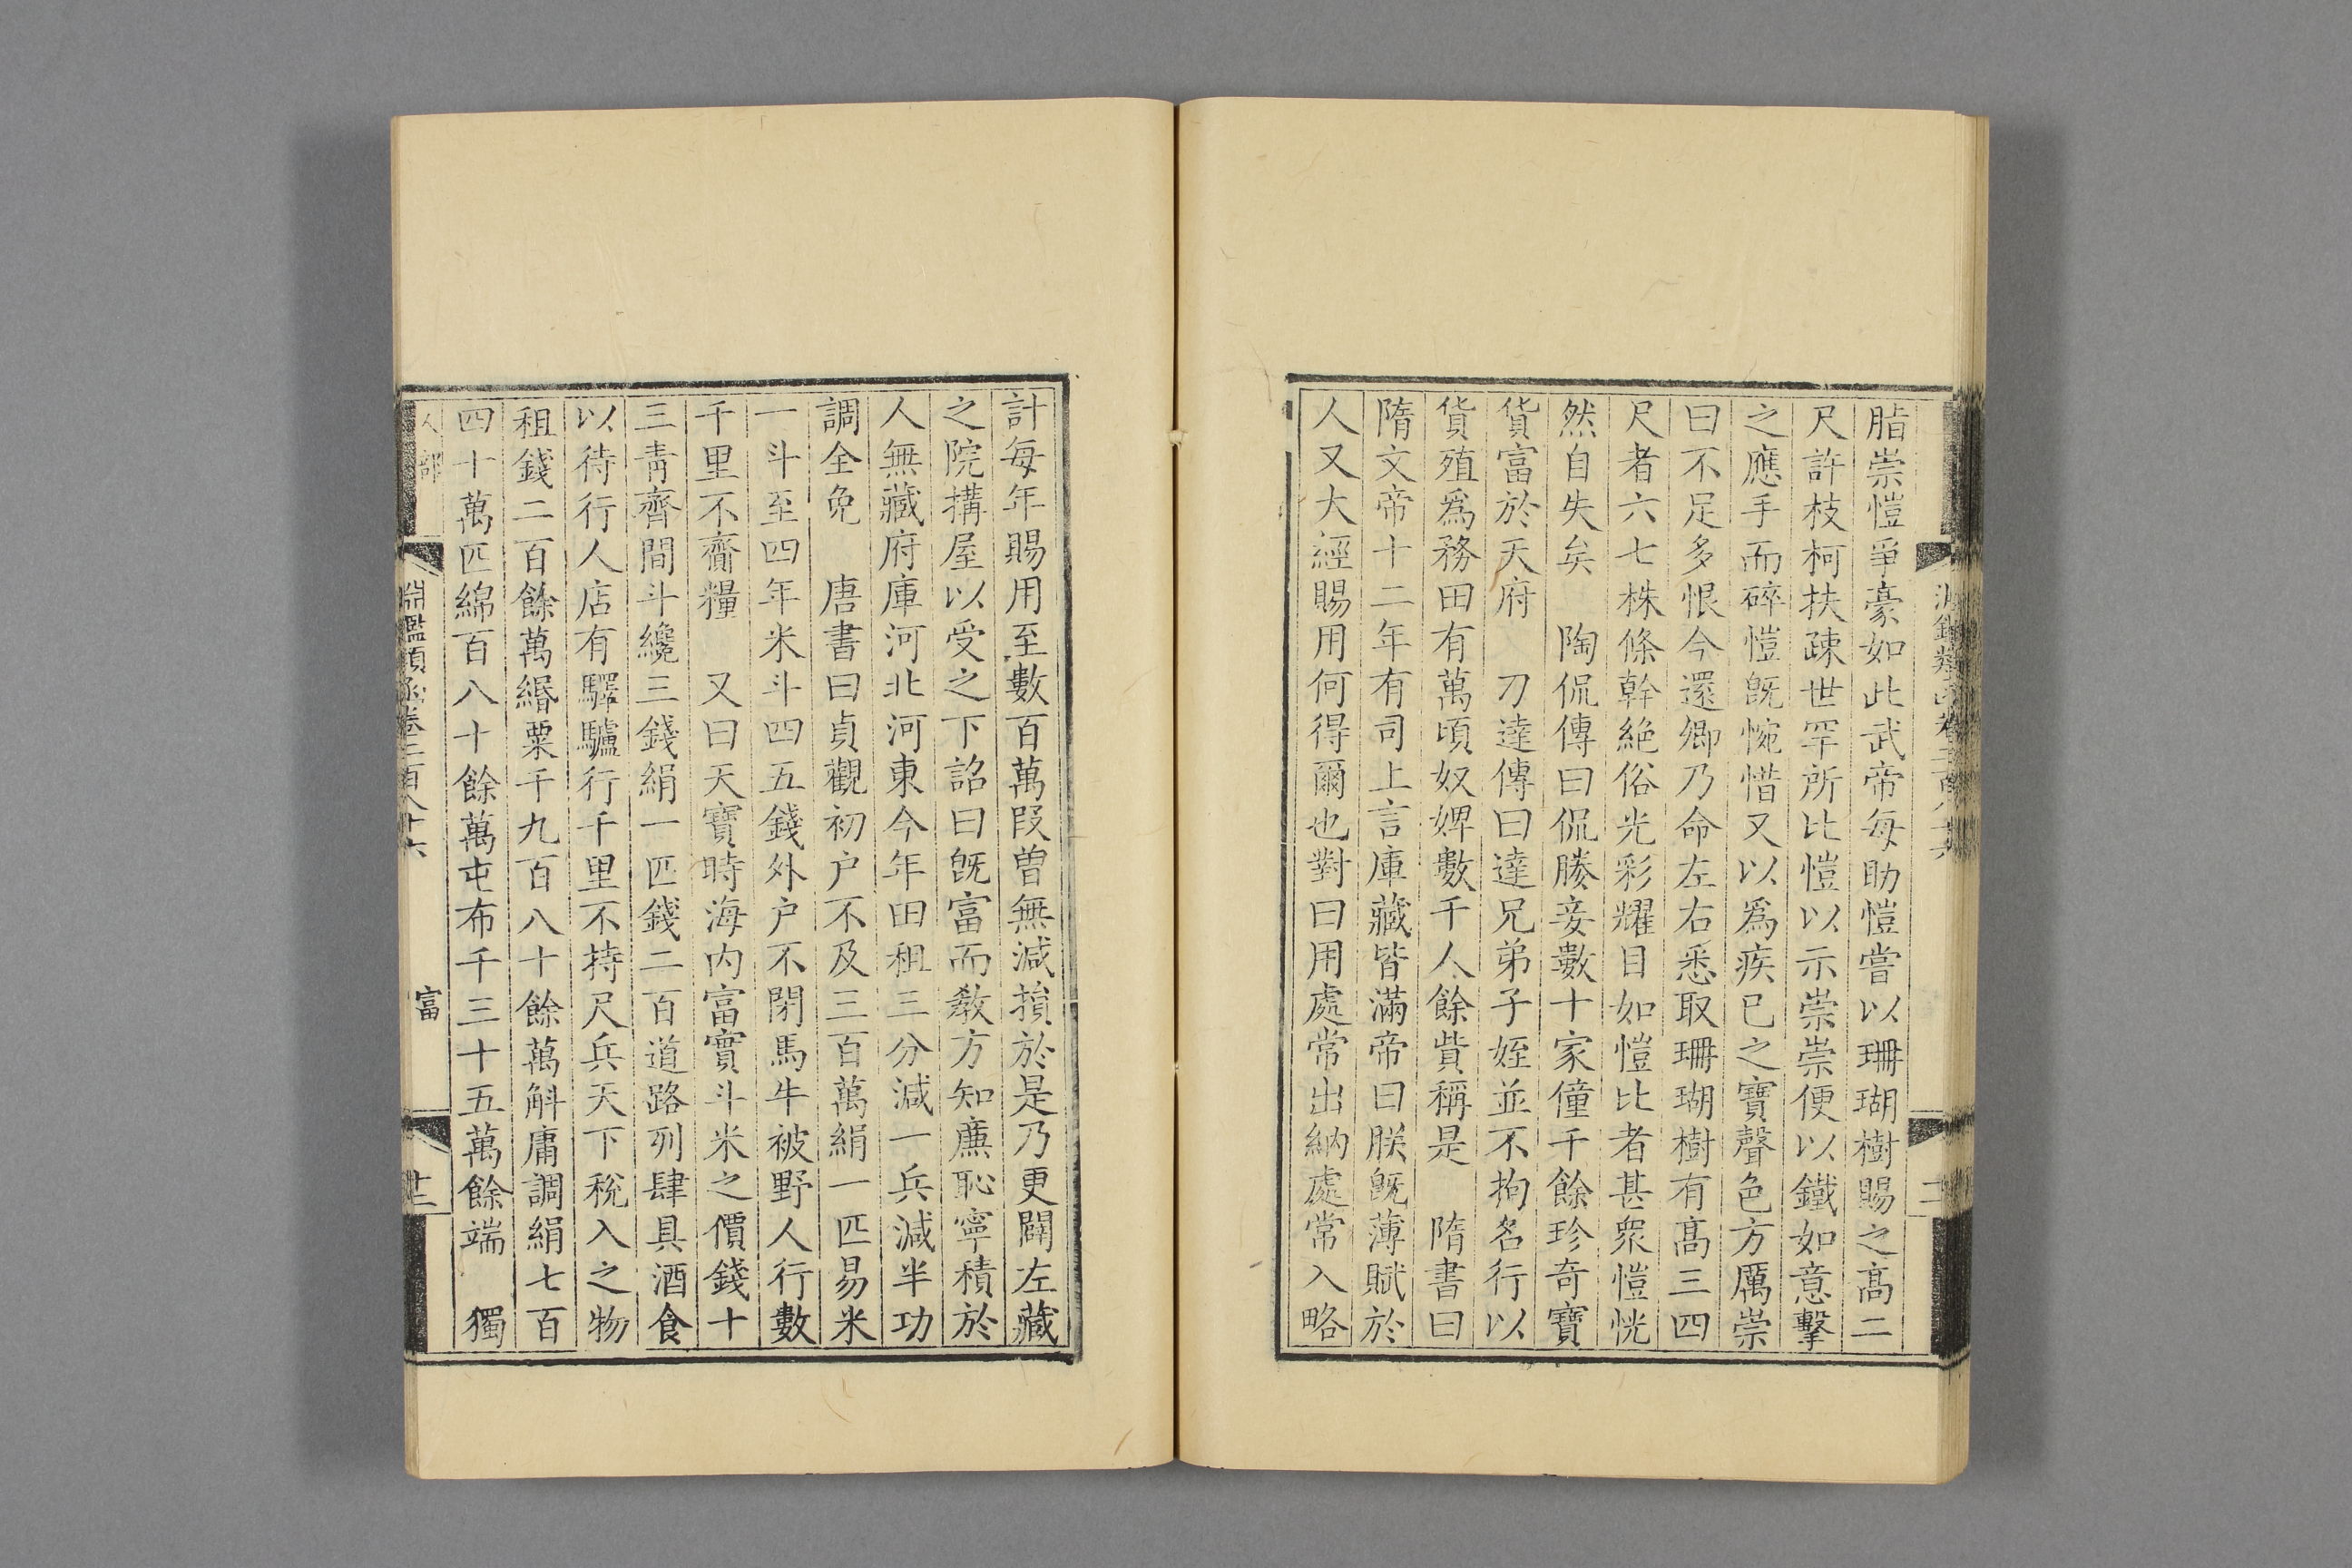 脂崇愷爭豪如此武帝每助愷嘗以珊瑚樹賜之高二
尺許枝柯扶疎世罕所比愷以示崇崇便以鐵如意擊
之應手而碎愷旣惋惜又以爲疾已之寶聲色方厲崇
曰不足多恨今還卿乃命左右悉取珊瑚樹有高三四
尺者六七株條幹絶俗光彩耀目如愷比者甚衆愷恍
然自失矣　陶侃傳曰侃媵妾數十家僮千餘珍奇寶
貨富於天府　刀逹傳曰逹兄弟子姪並不拘名行以
貨殖爲務田有萬頃奴婢數千人餘貲稱是　隋書曰
隋文帝十二年有司上言庫藏皆滿帝曰朕旣薄賦於
人又大經賜用何得爾也對曰用處常出納處常入略
計每年賜用至數百萬段曾無減損於是乃更闢左藏
之院搆屋以受之下詔曰旣富而敎方知亷恥寧積於
人無藏府庫河北河東今年田租三分減一兵減半功
調全免　唐書曰貞觀初户不及三百萬絹一匹易米
一斗至四年米斗四五錢外户不閉馬牛被野人行數
千里不齎糧　又曰天寶時海内富實斗米之價錢十
三青齊間斗纔三錢絹一匹錢二百道路列肆具酒食
以待行人店有驛驢行千里不持尺兵天下稅入之物
租錢二百餘萬緡粟千九百八十餘萬斛庸調絹七百
四十萬匹綿百八十餘萬屯布千三十五萬餘端　獨
人部
淵鑑類函卷三百八十六
富